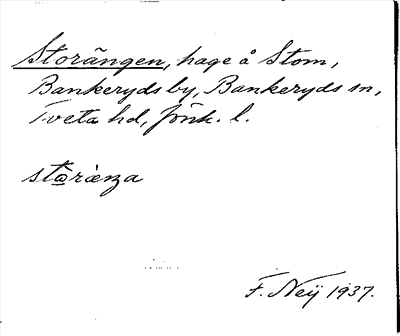 Storängen, hage å Stom,
Bankeryds by, Bankeryds sn,
Tveta hd, Jönk. l.
stɷ̀rànza
F. Neij 1937.